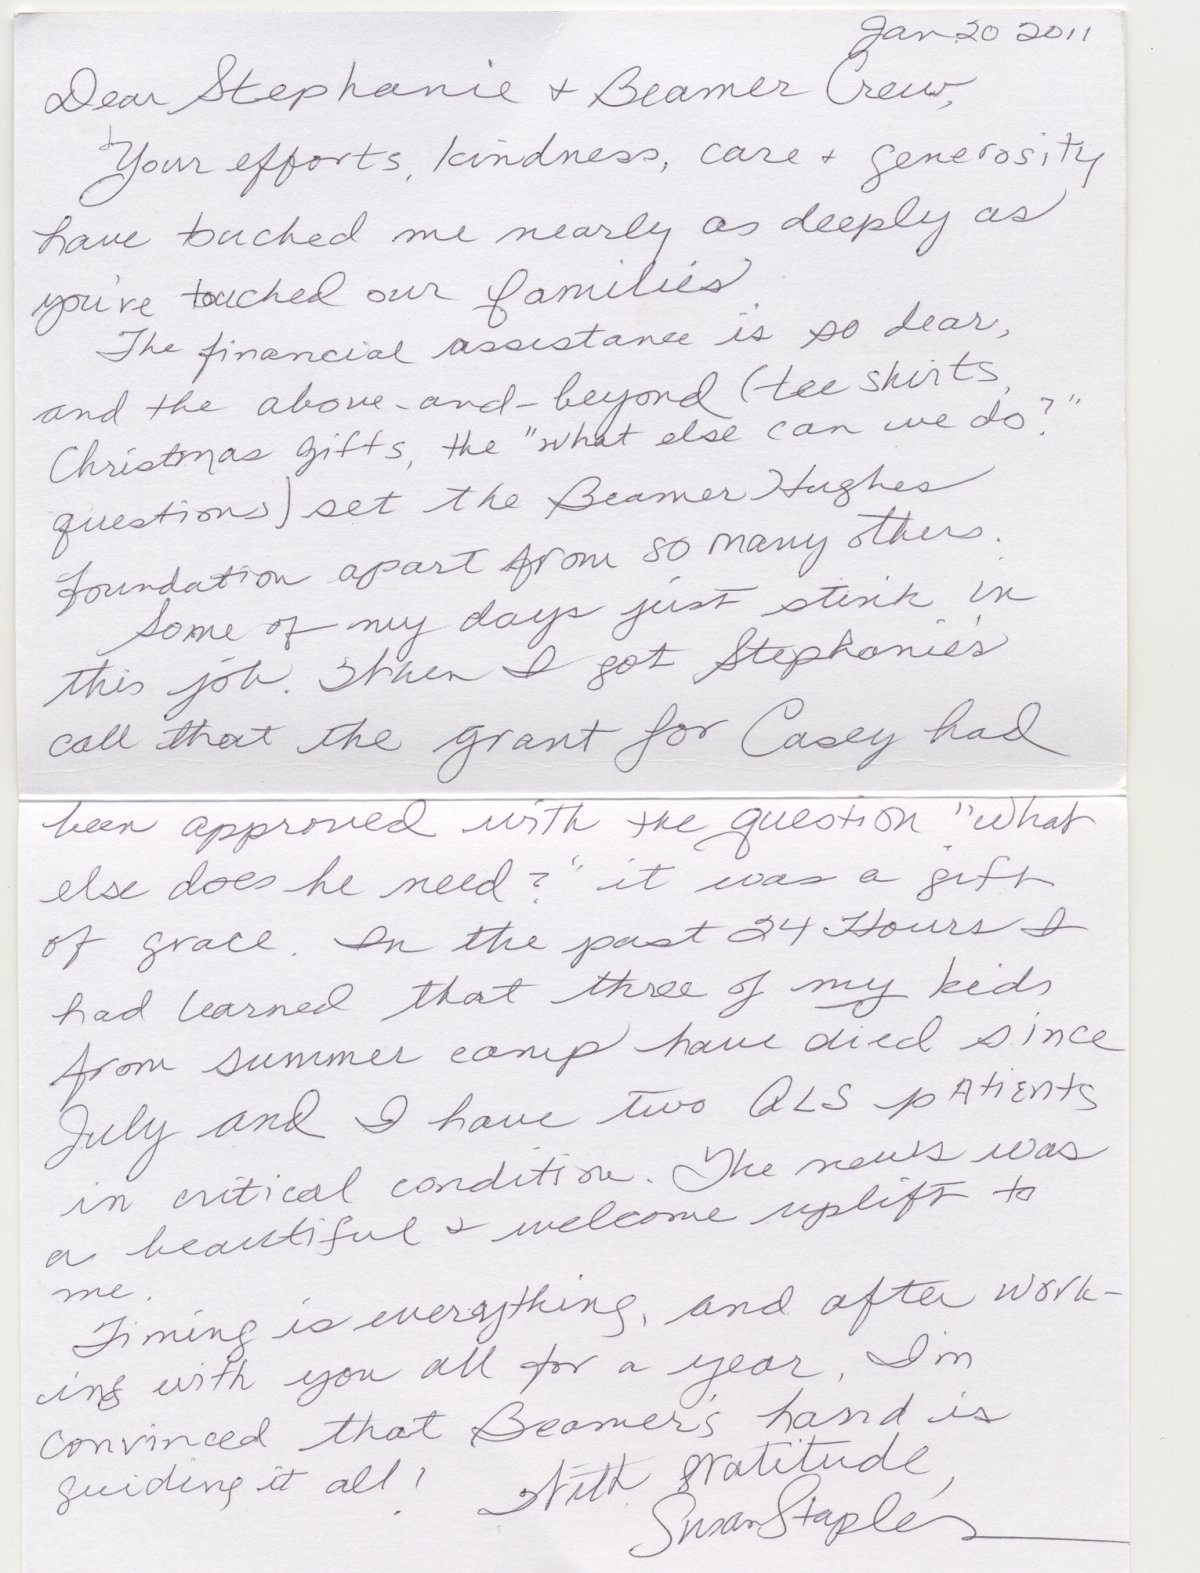 Jan 20 2011
Dear Stephanie + Beamer Crew,
Your efforts, kindness, care + generosity
have touched me nearly as deeply as
you've touched our families.
The financial assistance is so dear,
and the above-and-beyond (tee shirts,
Christmas gifts, the "what else can we do?"
questions) set the Beamer Hughes
Foundation apart from so many others.
Some of my days just stink in
this job. When I got Stephanie's
call that the grant for Casey had
been approved with the question "what
else does he need?" it was a gift
of grace. In the past 24 Hours I
had learned that three of my kids
from summer camp have died since
July and I have two ALS patients
in critical condition. The news was
a beautiful & welcome uplift to
me.
Timing is everything, and after work-
ing with you all for a year, I'm
convinced that Beamer's hand is
guiding it all!
With gratitude,
Susan Staples